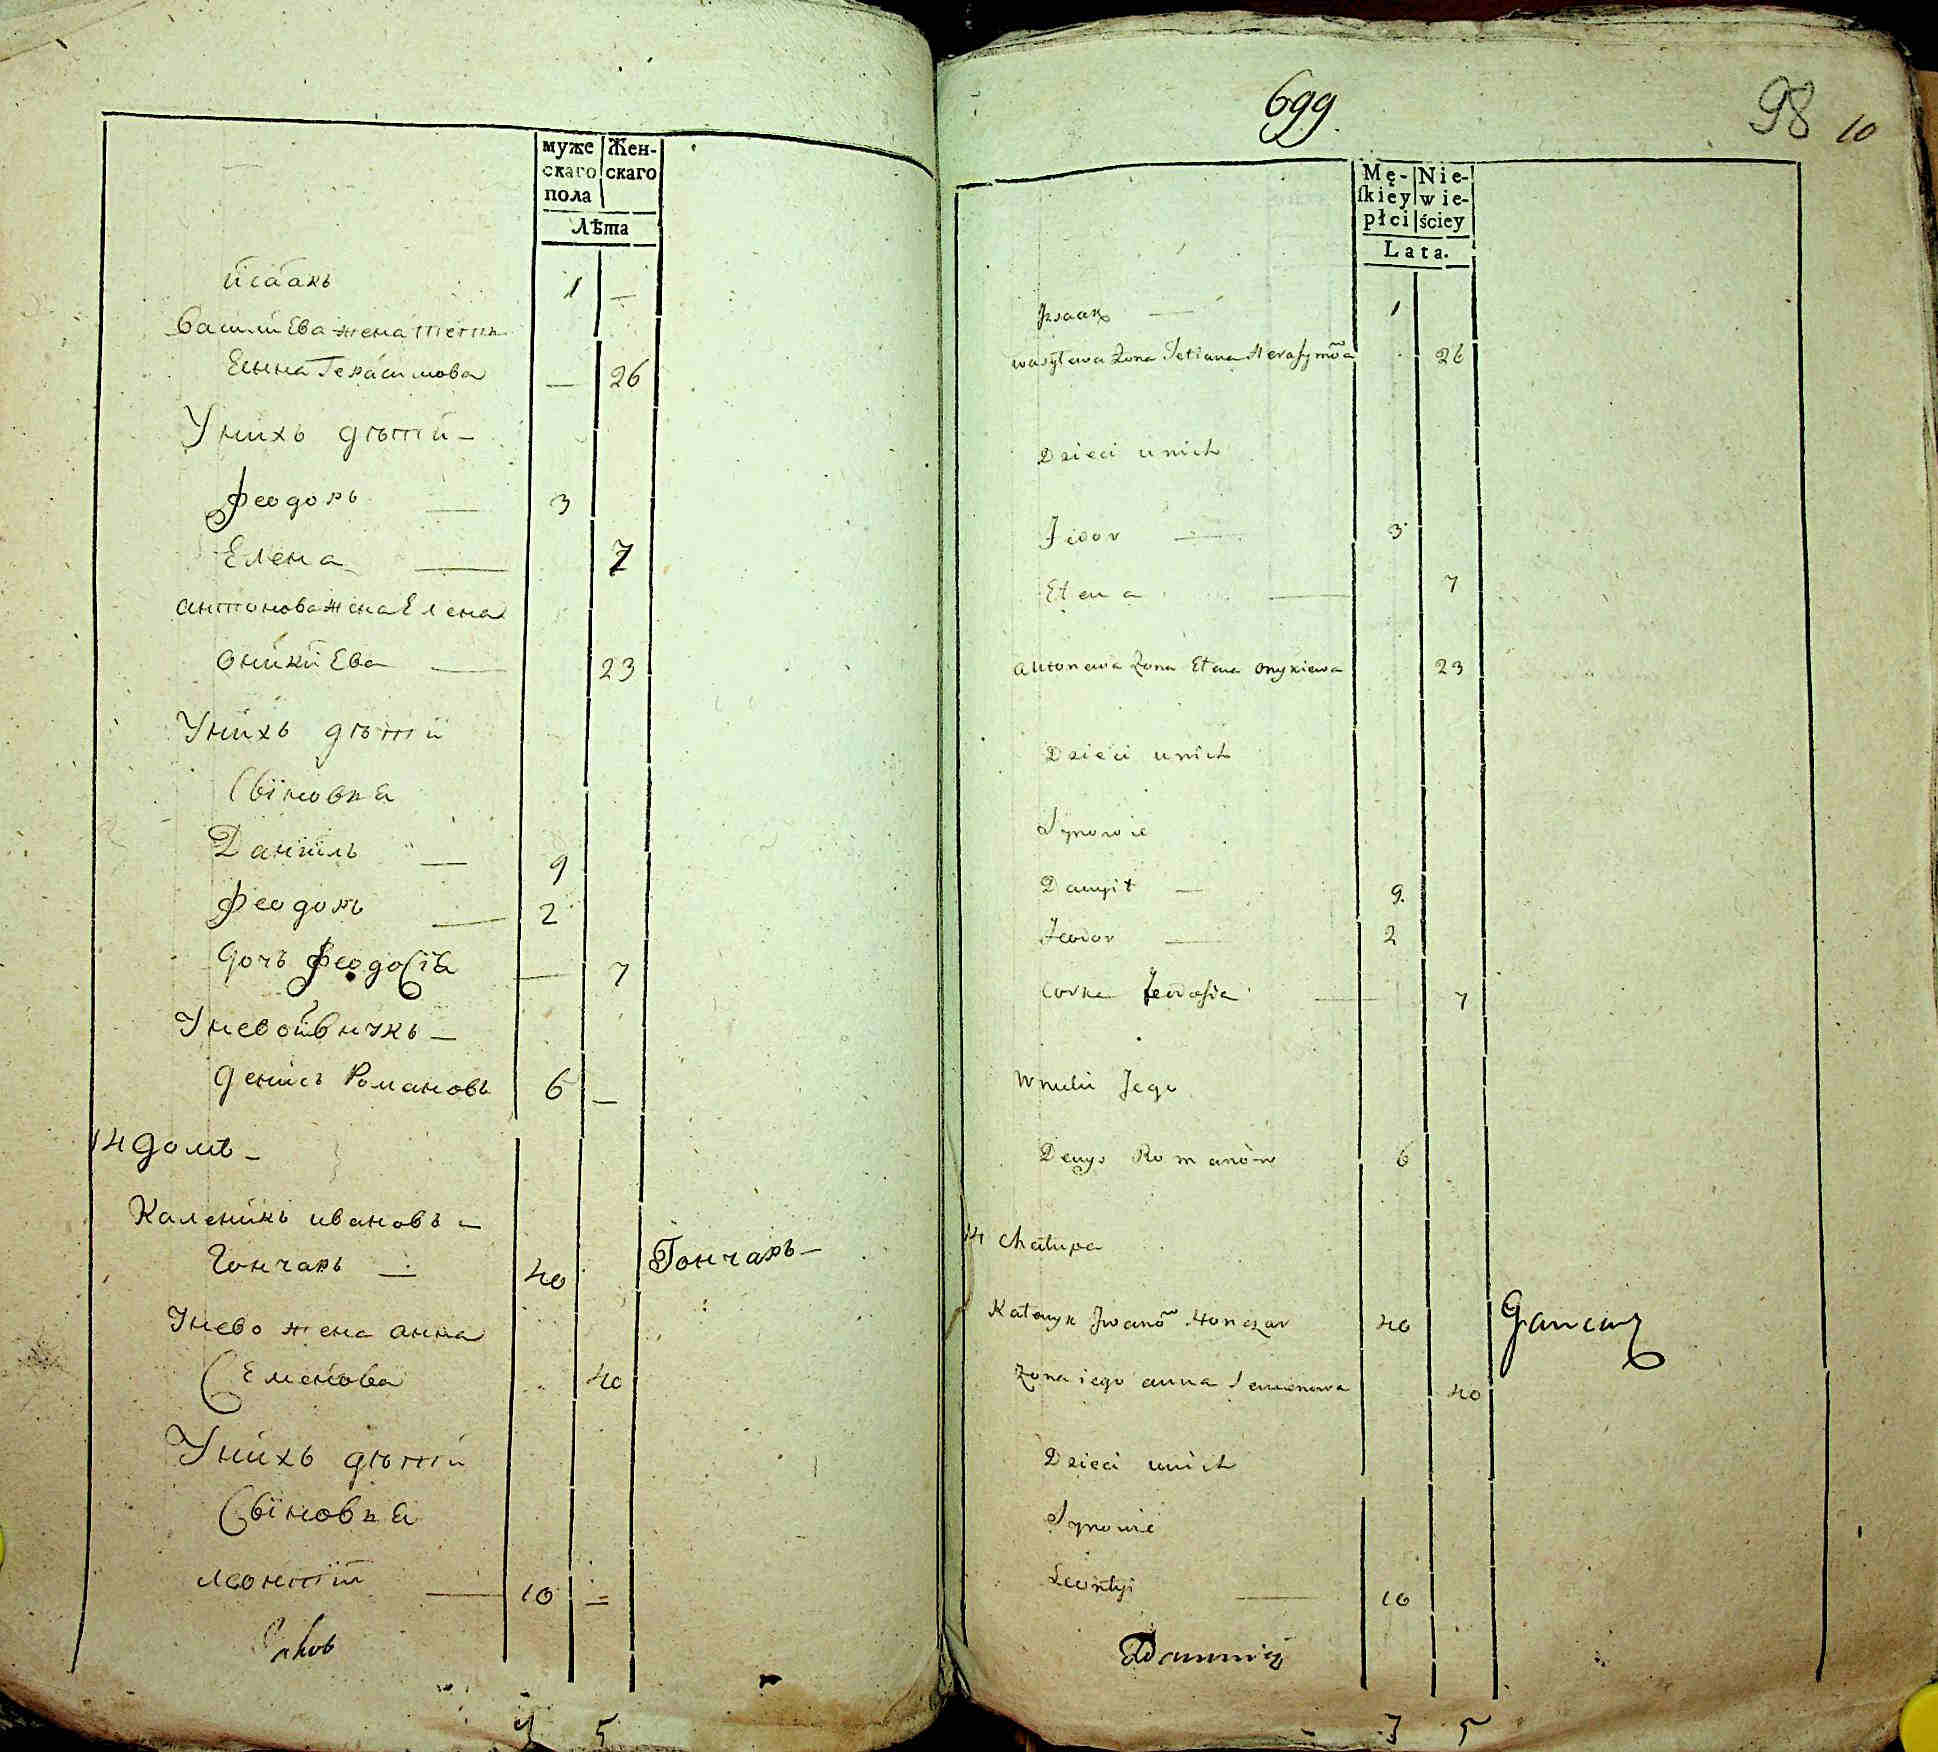 муже Жен-
скаго скаго
пола
Лѣта
Исаакъ 1 —
Василиева жена Тетi-
Еянна Герасимова — 26
У нихъ дѣти —
Феодоръ — 3
Елена — 7
Антонова жена Елена
Оникиева — 23
У нихъ дѣти
Сыновья
Данiилъ — 9
Феодоръ — 2
дочь Феодосiя — 7
У него внукъ —
Денисъ Романовъ 6 —
14 домъ —
Каленикъ Ивановъ —
Гончаръ — 40 Гончаръ —
У него жена Анна
Семенова 40
У нихъ дѣти
Сыновья
Леонтiй — 10 =
Яковъ
7 5
699
98 10
Mę- Nie-
ſkiey wie-
płci ściey
Lata.
Jzaak — 1
Wasylewa Zona Tetiana Herasymow̃a 26
Dzieci u nich
Fedor — 3
Elena — 7
Antonowa Zona Elena Onykiewa 23
Dzieci u nich
Synowie
Danyił — 9.
Feodor — 2
Corka Feodosia — 7
Wnuki Jego
Denys Romanòw 6
14 Chałupa
Kalenyk Jwanow̃ Honczar 40 Garncarz
Zona iego Anna Semenowa 40
Dzieci u nich
Synowie
Leontyi — 10
7 5